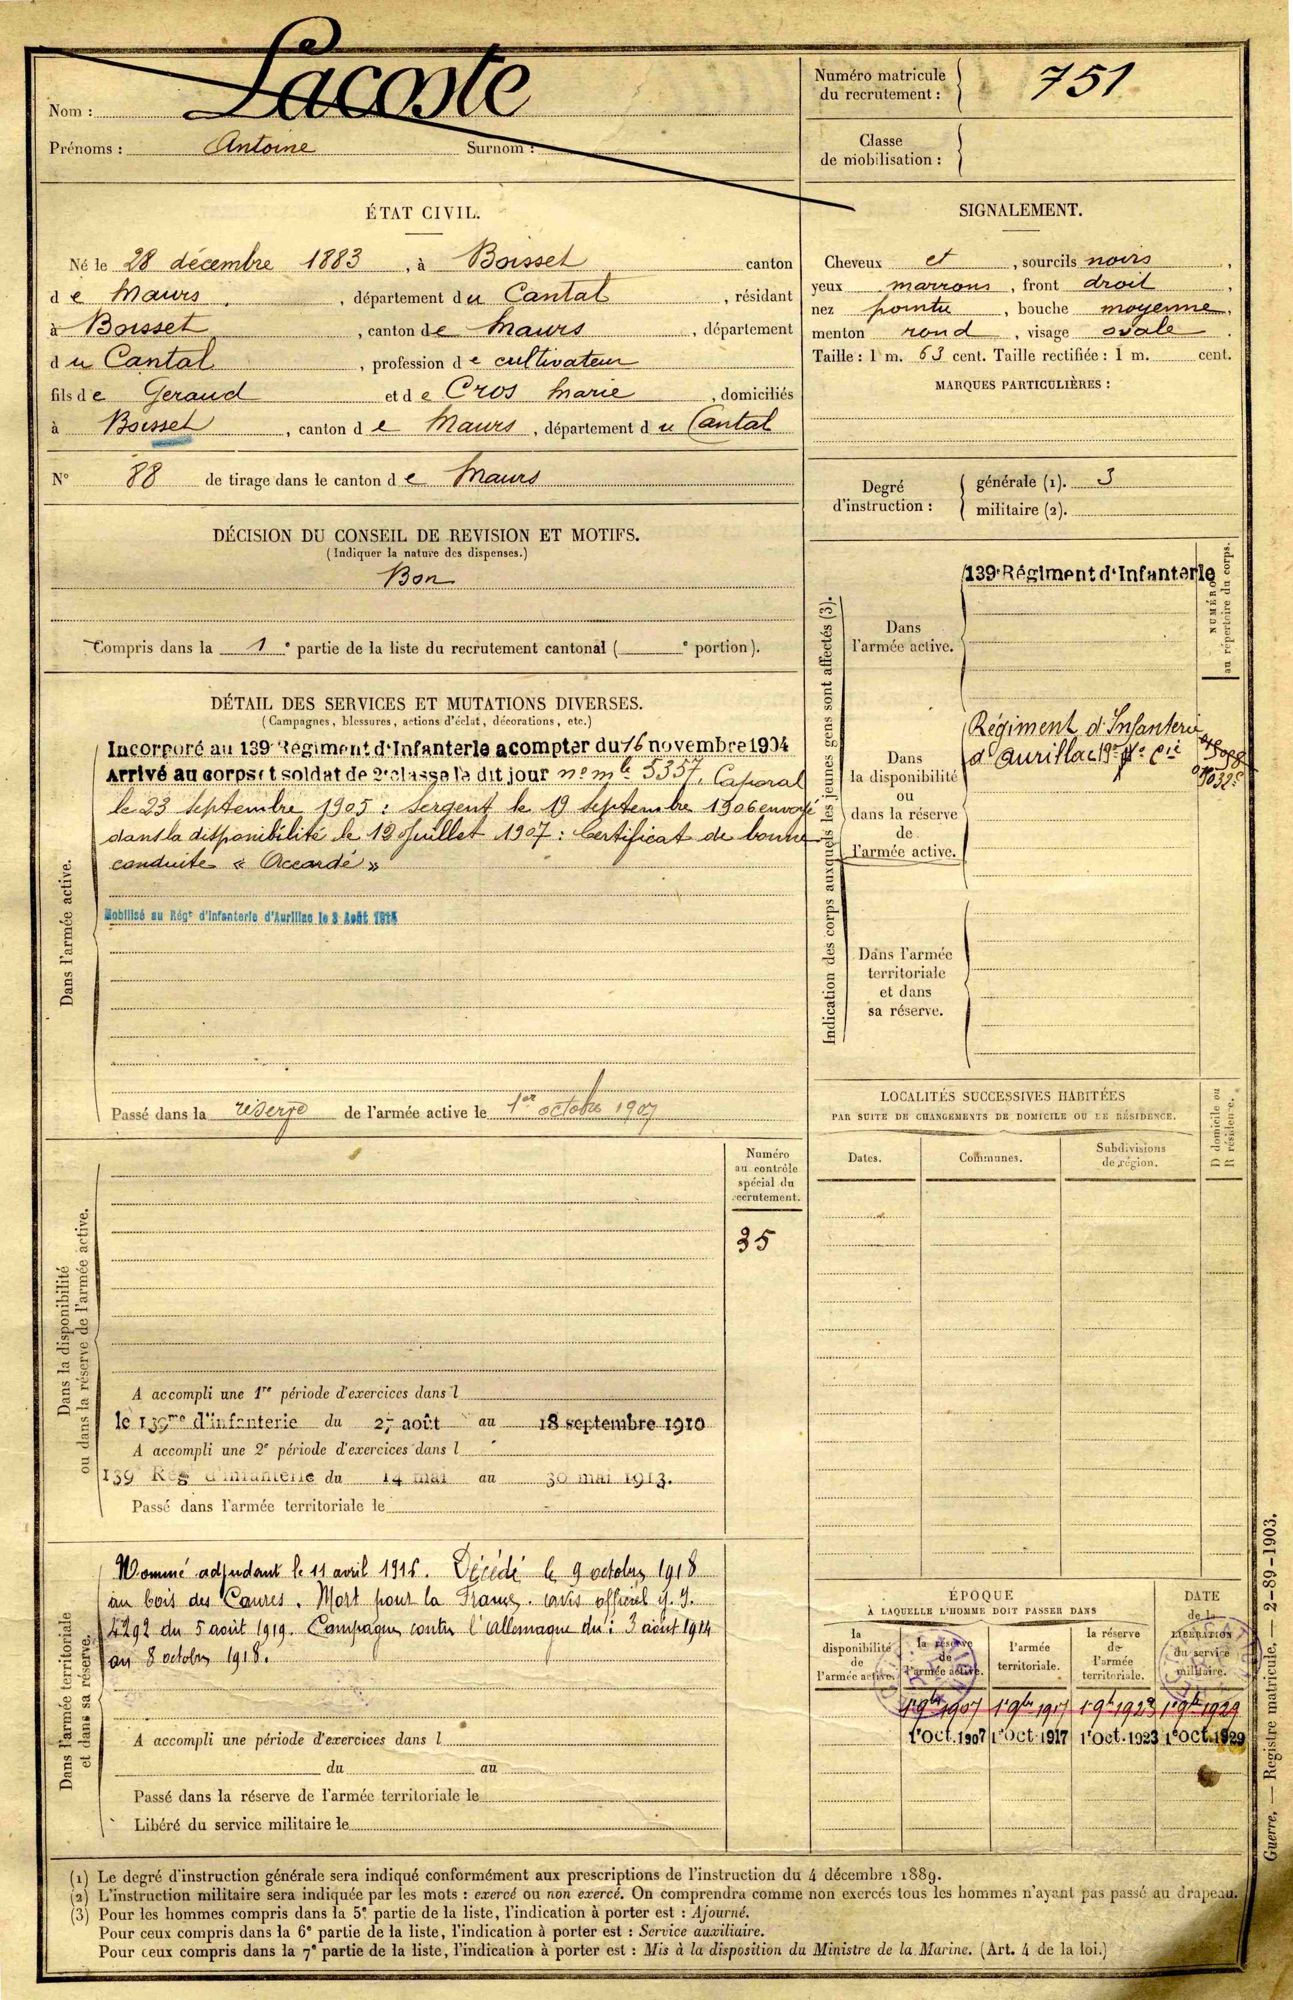 Nom : Lacoste
Prénoms : Antoine Surnom :
Numéro matricule du recrutement : 751
Classe de mobilisation :
ÉTAT CIVIL.
Né le 28 décembre 1883, à Boisset canton
de Maurs, département du Cantal, résidant
à Boisset, canton de Maurs, département
du Cantal, profession de cultivateur
fils de Geraud et de Cros Marie, domiciliés
à Boisset, canton de Maurs, département du Cantal
N° 88 de tirage dans le canton de Maurs
SIGNALEMENT.
Cheveux et, sourcils noirs,
yeux marrons, front droit,
nez pointu, bouche moyenne,
menton rond, visage ovale.
Taille : 1 m. 63 cent. Taille rectifiée : 1 m. cent.
MARQUES PARTICULIÈRES :
Degré d'instruction : générale (1). 3
militaire (2).
DÉCISION DU CONSEIL DE REVISION ET MOTIFS.
(Indiquer la nature des dispenses.)
Bon
Compris dans la 1e partie de la liste du recrutement cantonal ( e portion).
DÉTAIL DES SERVICES ET MUTATIONS DIVERSES.
(Campagnes, blessures, actions d'éclat, décorations, etc.)
Dans l'armée active.
Incorporé au 139e Régiment d'Infanterie a compter du 16 novembre 1904
Arrivé au corps et soldat de 2e classe le dit jour no mle 5357. Caporal
le 23 septembre 1905 : Sergent le 19 septembre 1906 envoyé
dans la disponibilité le 12 Juillet 1907 : Certificat de bonne
conduite « Accordé »
Mobilisé au Régt d'Infanterie d'Aurillac le 3 Août
Passé dans la réserve de l'armée active le 1er octobre 1907
Indication des corps auxquels les jeunes gens sont affectés (3).
NUMÉRO au répertoire du corps.
Dans l'armée active.
139e Régiment d'Infanterie
Dans la disponibilité ou dans la réserve de l'armée active.
Régiment d'Infanterie
d'Aurillac
Dans l'armée territoriale et dans sa réserve.
LOCALITÉS SUCCESSIVES HABITÉES
PAR SUITE DE CHANGEMENTS DE DOMICILE OU DE RÉSIDENCE.
Dates. Communes. Subdivisions de région. D domicile ou R résidence.
Dans la disponibilité ou dans la réserve de l'armée active.
Numéro au contrôle spécial du recrutement.
35
A accompli une 1re période d'exercices dans l
le 139me d'infanterie du 27 août au 18 septembre 1910
A accompli une 2e période d'exercices dans l
139 Rég d'infanterie du 14 mai au 30 mai 1913.
Passé dans l'armée territoriale le
Dans l'armée territoriale et dans sa réserve.
Nommé adjudant le 11 avril 1916. Décédé le 9 octobre 1918
au bois des Caures. Mort pour la France. avis officiel
4292 du 5 août 1919. Campagne contre l'Allemagne du : 3 août 1914
au 8 octobre 1918.
A accompli une période d'exercices dans l
du au
Passé dans la réserve de l'armée territoriale le
Libéré du service militaire le
ÉPOQUE
À LAQUELLE L'HOMME DOIT PASSER DANS
DATE de la LIBÉRATION du service militaire.
la disponibilité de l'armée active. la réserve de l'armée active. l'armée territoriale. la réserve de l'armée territoriale.
1er 9bre 1907 1er 9bre 1917 1er 9bre 1923 1er 9bre 1929
1eOct.1907 1eOct.1917 1eOct.1923 1eOct.1929
Guerre. — Registre matricule. — 2-89-1903.
(1) Le degré d'instruction générale sera indiqué conformément aux prescriptions de l'instruction du 4 décembre 1889.
(2) L'instruction militaire sera indiquée par les mots : exercé ou non exercé. On comprendra comme non exercés tous les hommes n'ayant pas passé au drapeau.
(3) Pour les hommes compris dans la 5e partie de la liste, l'indication à porter est : Ajourné.
Pour ceux compris dans la 6e partie de la liste, l'indication à porter est : Service auxiliaire.
Pour ceux compris dans la 7e partie de la liste, l'indication à porter est : Mis à la disposition du Ministre de la Marine. (Art. 4 de la loi.)